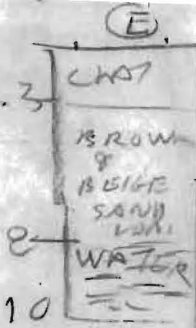 E
CLAY
3
BROWN
&
BEIGE
SAND
8
WATER
10